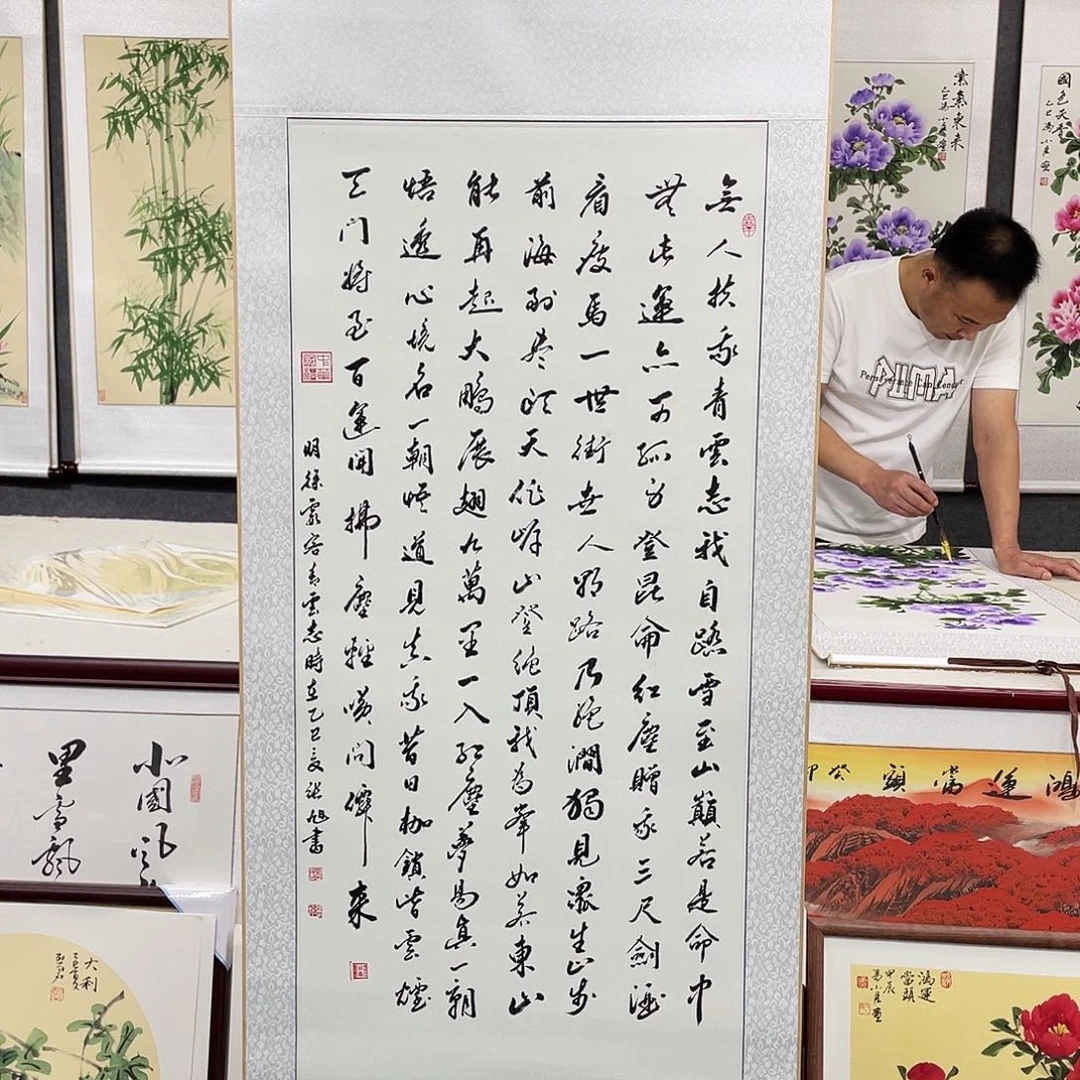 無人扶我青雲志我自踏雪至山巔若是命中
無此運亦可孤身登昆侖紅塵贈我三尺劍酒
看瘦馬一世街世人那路乃絕澗獨見眾生止步
前海到盡頭天作岸山登絕頂我為峯如若東山
能再起大鵬展翅九萬里一入紅塵夢易真一朝
悟透心境名一朝悟道見真我昔日枷鎖皆雲煙
天門將至百運開拂塵輕笑問僊來
明徐霞客青雲志時在乙巳夏張旭書
紫氣東來
國色天香
Perseverance Can Conquer
PUMA
北國風
里雪飄
大利
鴻運當頭
癸卯
鴻運
當頭
甲辰